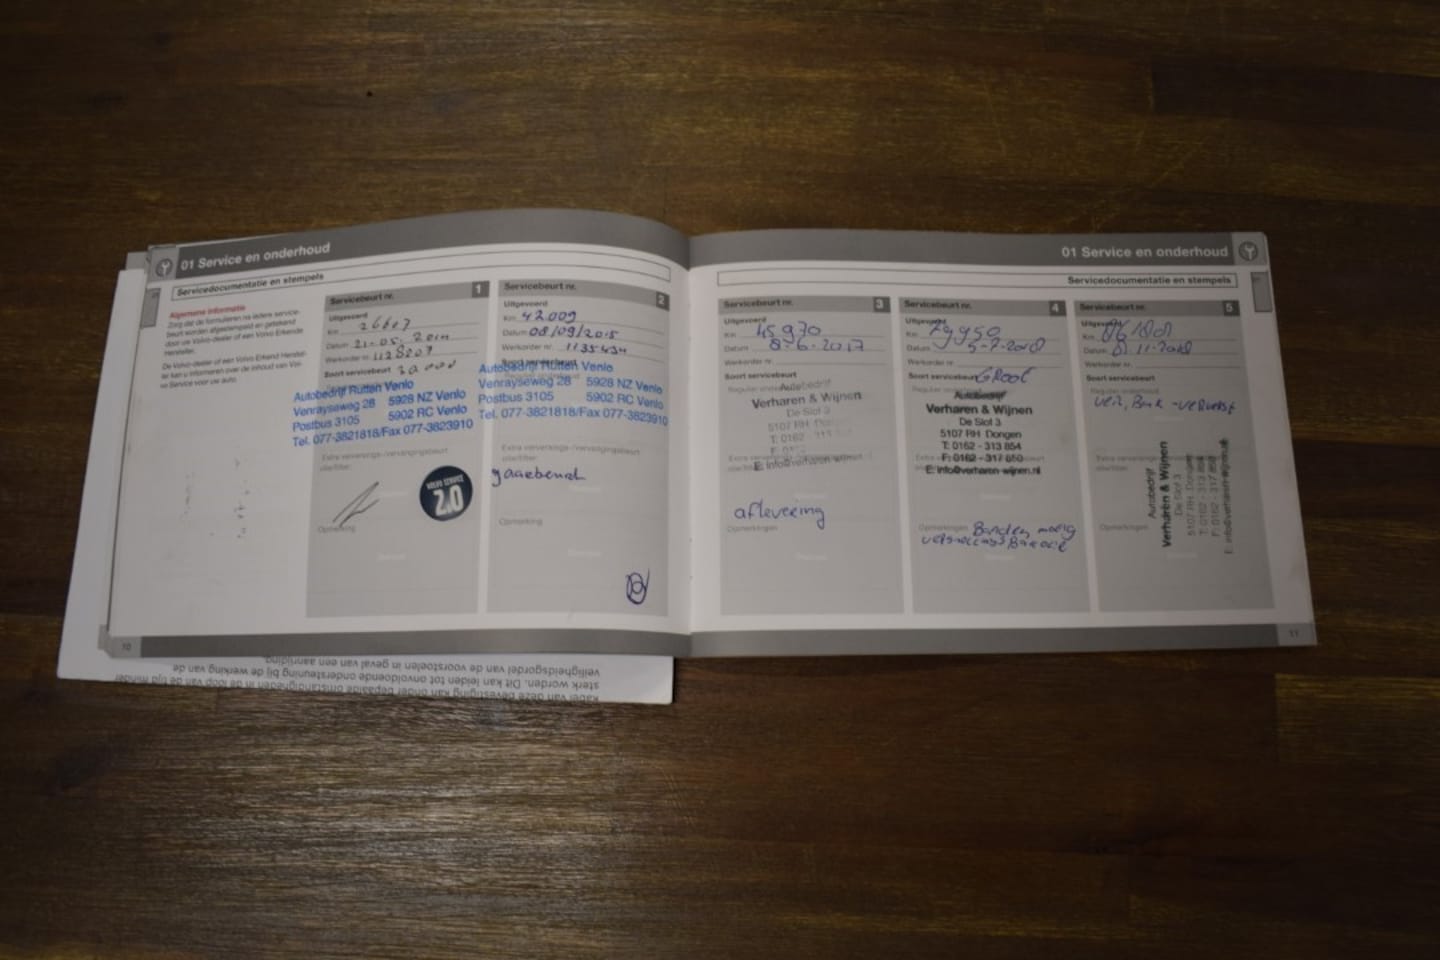 01 Service en onderhoud
Servicedocumentatie en stempels
Algemene informatie
Zorg dat de formulieren na iedere service-
beurt worden afgestempeld en getekend
door uw Volvo-dealer of een Volvo Erkende
Hersteller.
De Volvo-dealer of een Volvo Erkend Herstel-
ler kan u informeren over de inhoud van Vol-
vo Service voor uw auto.
Servicebeurt nr. 1
Uitgevoerd
Km 26607
Datum 21-05-2014
Werkorder nr. 1128207
Soort servicebeurt 30 000
Autobedrijf Rutten Venlo
Venrayseweg 28 5928 NZ Venlo
Postbus 3105 5902 RC Venlo
Tel. 077-3821818/Fax 077-3823910
Extra verversings-/vervangingsbeurt
olie/filter:
VOLVO SERVICE
2.0
Opmerking
Servicebeurt nr. 2
Uitgevoerd
Km 42009
Datum 08/09/2015
Werkorder nr. 1135434
Soort servicebeurt
Autobedrijf Rutten Venlo
Venrayseweg 28 5928 NZ Venlo
Postbus 3105 5902 RC Venlo
Tel. 077-3821818/Fax 077-3823910
Extra verversings-/vervangingsbeurt
olie/filter:
Opmerking
10
01 Service en onderhoud
Servicedocumentatie en stempels
Servicebeurt nr. 3
Uitgevoerd
Km 45970
Datum 8-6-2017
Werkorder nr.
Soort servicebeurt
Autobedrijf
Verharen & Wijnen
De Slof 3
5107 RH Dongen
T: 0162 - 313
E: info@verharen-wijnen.nl
aflevering
Opmerkingen
Servicebeurt nr. 4
Uitgevoerd
Km 79950
Datum 5-7-2018
Werkorder nr.
Soort servicebeurt GROOT
Autobedrijf
Verharen & Wijnen
De Slof 3
5107 RH Dongen
T: 0162 - 313 854
F: 0162 - 317 850
E: info@verharen-wijnen.nl
Opmerkingen Banden matig
Servicebeurt nr. 5
Uitgevoerd
Km
Datum 11-2018
Werkorder nr.
Soort servicebeurt
Autobedrijf
Verharen & Wijnen
De Slof 3
5107 RH Dongen
T: 0162 - 313 854
F: 0162 - 317 850
E: info@verharen-wijnen.nl
Opmerkingen
11
veiligheidsgordel van de voorstoelen in geval van een aanrijding.
sterk worden. Dit kan leiden tot onvoldoende ondersteuning bij de werking van de
kabel van deze bevestiging kan onder bepaalde omstandigheden in de loop van de tijd minder